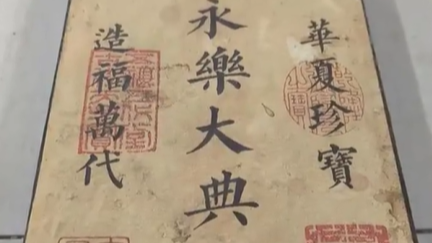 華夏珍寶
永樂大典
造福萬代